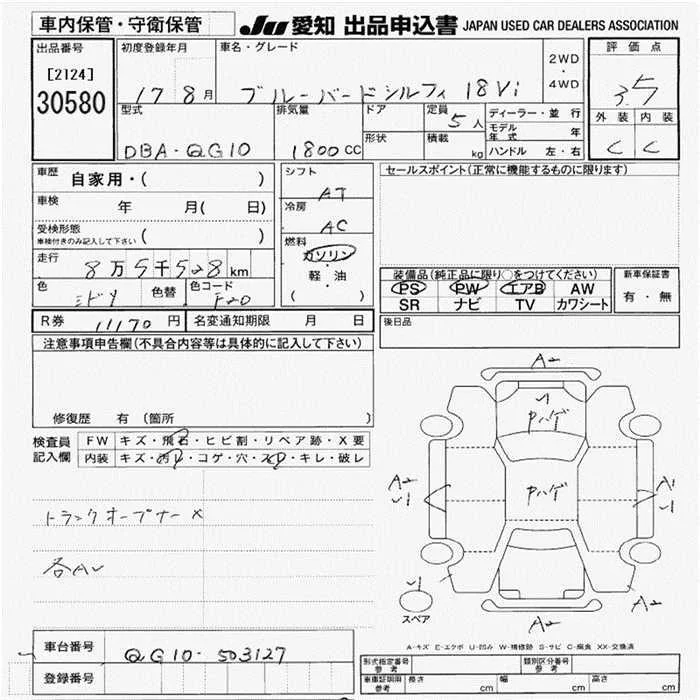 車内保管・守衛保管
JU 愛知 出品申込書 JAPAN USED CAR DEALERS ASSOCIATION
出品番号
[2124]
30580
初度登録年月
17 8月
車名・グレード
ブルーバードシルフィ 18Vi
2WD
・
4WD
評価点
3.5
外装 内装
C C
型式
DBA-QG10
排気量
1800CC
ドア
形状
定員
5人
積載
kg
ディーラー・並行
モデル年式 年
ハンドル 左・右
車歴
自家用・( )
車検
年 月( 日)
受検形態
車検付きのみ記入して下さい ( )
走行
8万5千528km
色
ミドリ
色替
色コード
F20
シフト
AT
冷房
AC
燃料
ガソリン
・
軽油
( )
セールスポイント(正常に機能するものに限ります)
装備品(純正品に限り○をつけてください)
PS PW エアB AW
SR ナビ TV カワシート
新車保証書
有・無
R券 11170円
名変通知期限 月 日
後日品
注意事項申告欄(不具合内容等は具体的に記入して下さい)
修復歴 有 (箇所 )
検査員記入欄
FW キズ・飛石・ヒビ割・リペア跡・X要
内装 キズ・汚れ・コゲ・穴・スレ・キレ・破レ
トランクオープナー×
各AU
A2
U1
Pハゲ
A2
U1
Pハゲ
A1
U1
U1
スペア
A2
A2
A-キズ E-エクボ U-凹み W-補修跡 S-サビ C-腐食 XX-交換済
車台番号
QG10-503127
登録番号
型式指定番号
参考
類別区分番号
参考
車庫証明用
参考
長さ cm
幅 cm
高さ cm